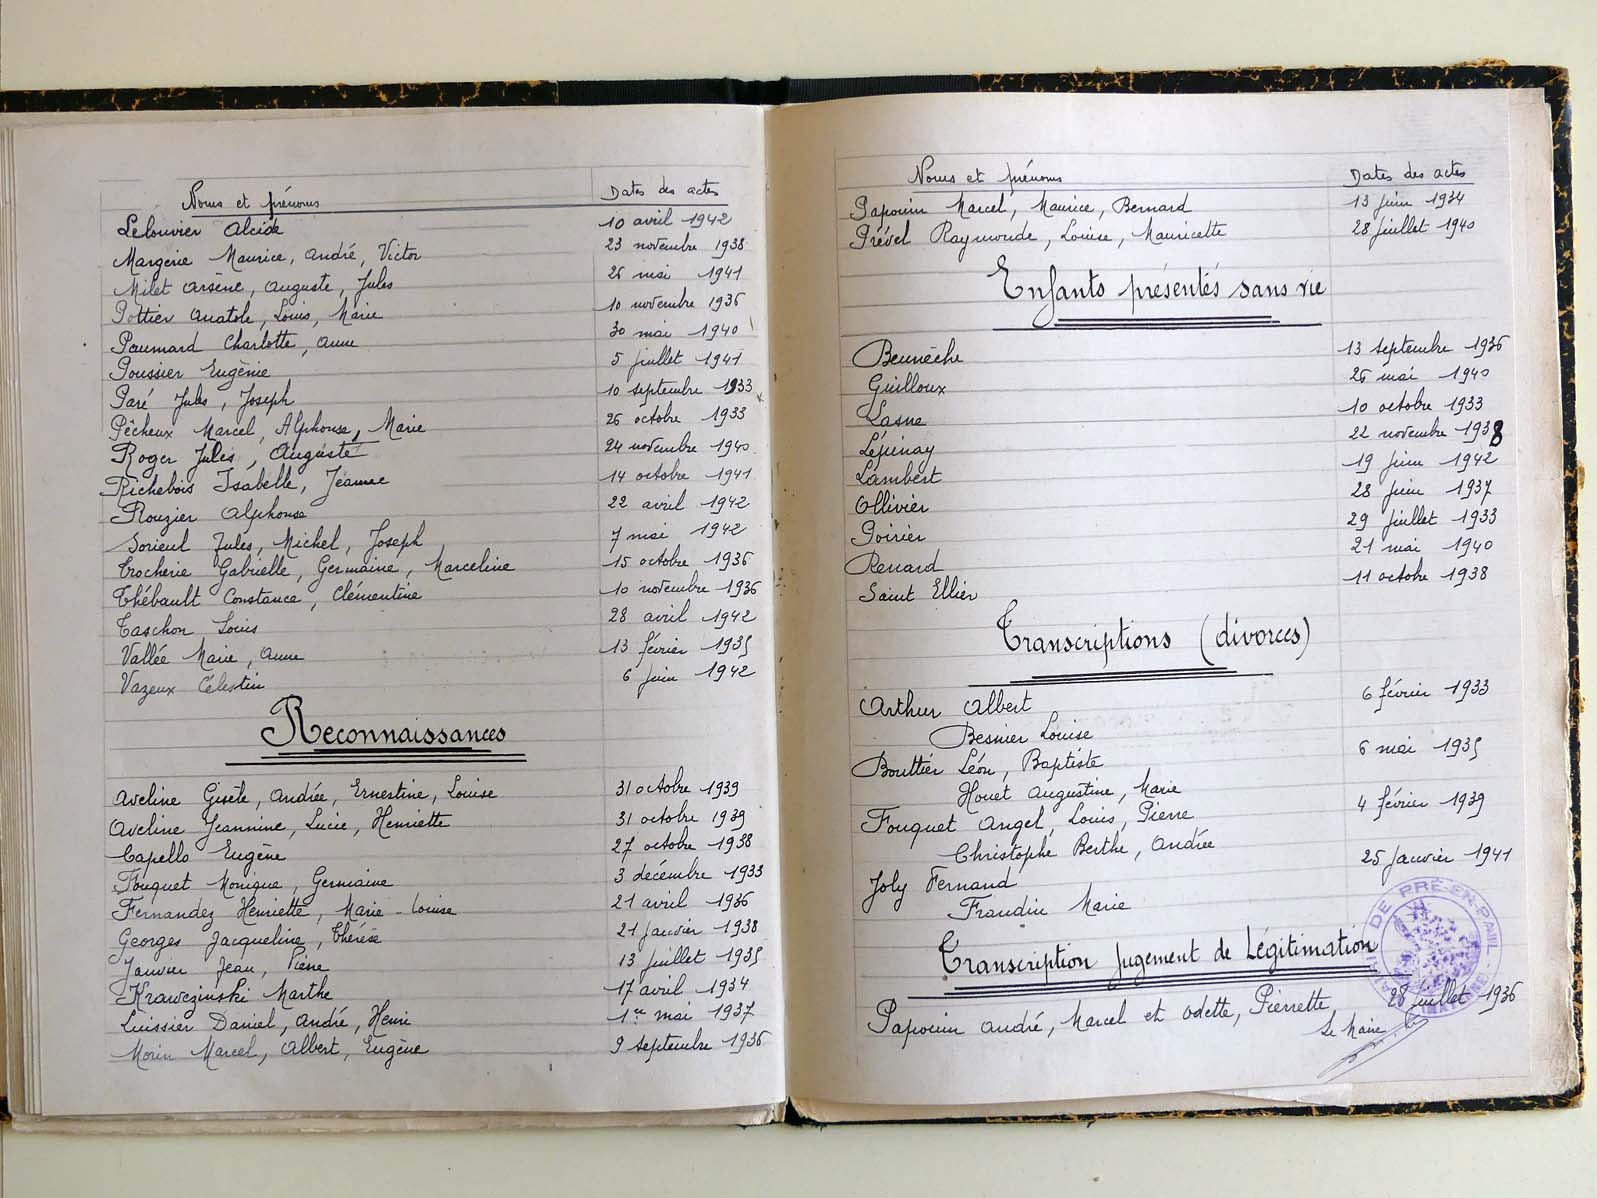 Noms et prénoms Dates des actes
Lelouvier Alcide 10 avril 1942
Margerie Maurice, André, Victor 23 novembre 1938
Milet Arsène, Auguste, Jules 26 mai 1941
Pottier Anatole, Louis, Marie 10 novembre 1936
Paumard Charlotte, Anne 30 mai 1940
Poussier Eugénie 5 juillet 1941
Paré Jules, Joseph 10 septembre 1933
Pêcheux Marcel, Alphonse, Marie 26 octobre 1933
Roger Jules, Auguste 24 novembre 1940
Richebois Isabelle, Jeanne 14 octobre 1941
Rouzier Alphonse 22 avril 1942
Sorieul Jules, Michel, Joseph 7 mai 1942
Trocherie Gabrielle, Germaine, Marceline 15 octobre 1936
Thébault Constance, Clémentine 10 novembre 1936
Taschon Louis 28 avril 1942
Vallée Marie, Anne 13 février 1935
Vazeux Célestin 6 juin 1942
Reconnaissances
Aveline Gisèle, Andrée, Ernestine, Louise 31 octobre 1939
Aveline Jeannine, Lucie, Henriette 31 octobre 1939
Capello Eugène 27 octobre 1938
Fouquet Monique, Germaine 3 décembre 1933
Fernandez Henriette, Marie-Louise 21 avril 1936
Georges Jacqueline, Thérèse 21 janvier 1938
Janvier Jean, Pierre 13 juillet 1935
Krawczinski Marthe 17 avril 1934
Luissier Daniel, André, Henri 1er mai 1937
Morin Marcel, Albert, Eugène 9 septembre 1936
Noms et prénoms Dates des actes
Papouin Marcel, Maurice, Bernard 13 juin 1934
Prével Raymonde, Louise, Mauricette 28 juillet 1940
Enfants présentés sans vie
Beunèche 13 septembre 1936
Guilloux 26 mai 1940
Lasne 10 octobre 1933
Lépinay 22 novembre 1938
Lambert 19 juin 1942
Ollivier 28 juin 1937
Poirier 29 juillet 1933
Renard 21 mai 1940
Saint Ellier 11 octobre 1938
Transcriptions (divorces)
Arthur Albert 6 février 1933
Besnier Louise
Bouttier Léon, Baptiste 6 mai 1935
Houet Augustine, Marie
Fouquet Angel, Louis, Pierre 4 février 1939
Christophe Berthe, Andrée
Joly Fernand 25 janvier 1941
Fraudin Marie
Transcription jugement de Légitimation
Papouin André, Marcel et Odette, Pierrette 28 juillet 1936
Le Maire
DE PRÉ-EN-PAIL